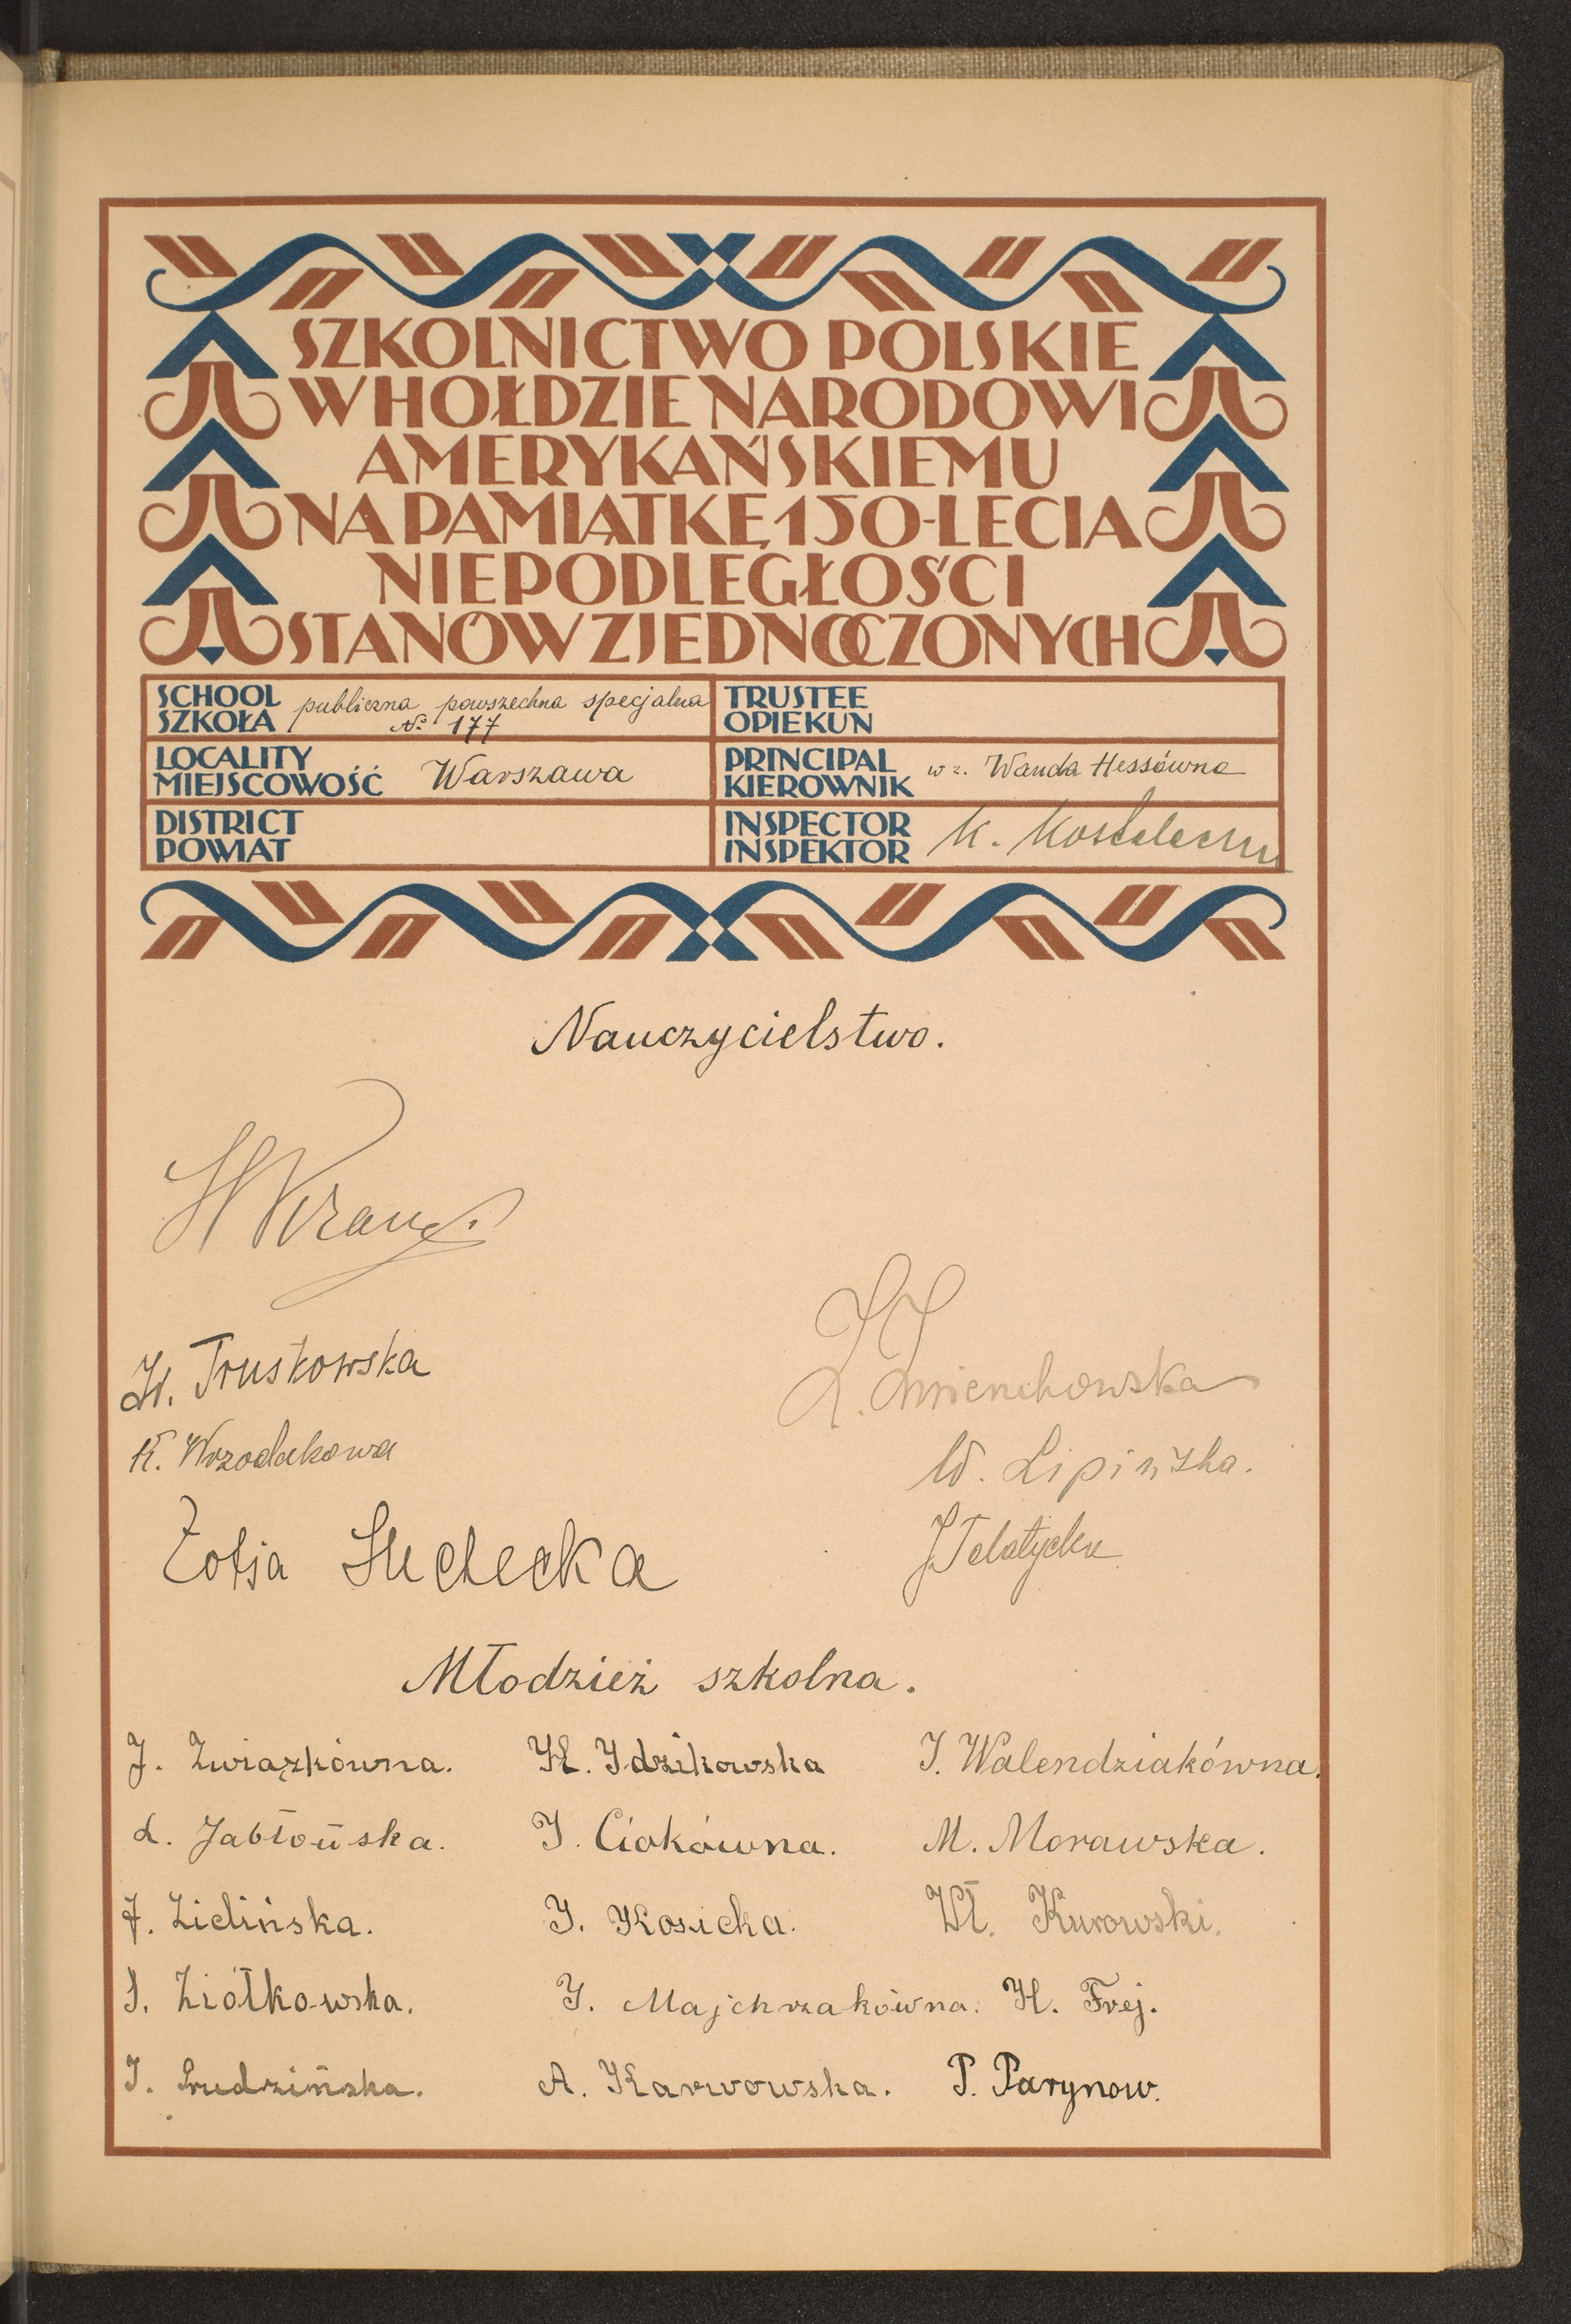 SZKOLNICTWO POLSKIE
W HOŁDZIE NARODOWI
AMERYKAŃSKIEMU
NA PAMIĄTKĘ 150-LECIA
NIEPODLEGŁOŚCI
STANÓW ZJEDNOCZONYCH
SCHOOL
SZKOŁA
publiczna powszechna specjalna
№ 177
TRUSTEE
OPIEKUN
LOCALITY
MIEJSCOWOŚĆ
Warszawa
PRINCIPAL
KIEROWNIK
w z. Wanda Hessówna
DISTRICT
POWIAT
INSPECTOR
INSPEKTOR
K.
Nauczycielstwo.
H.
H. Truskowska
K. Wrzodakowa
Zofja Suchecka
W. Lipińska.
Młodzież szkolna.
J. Związkówna.
H. Idzikowska
I. Walendziakówna.
L. Jabłońska.
J. Ciokówna.
M. Morawska.
J. Zielińska.
J. Kosicka.
Wł. Kurowski.
S. Ziółkowska.
J. Majchrzakówna.
H. Frej.
J. Grudzińska.
A. Karwowska.
P. Parynow.